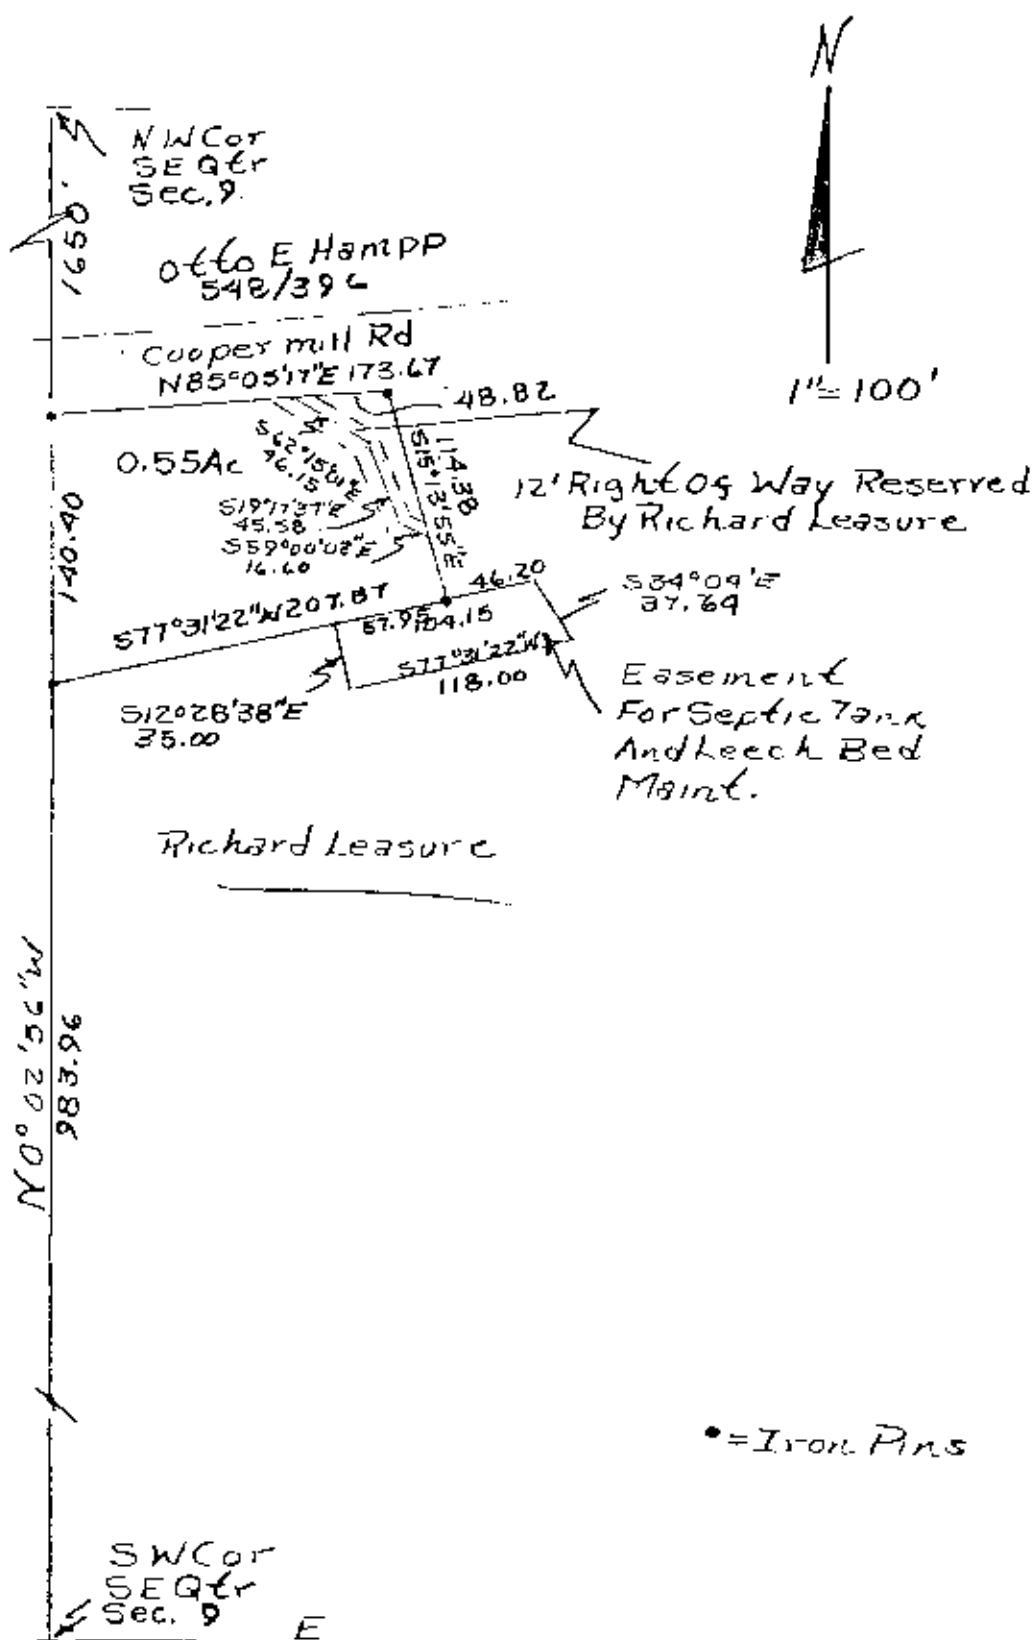 N
NW Cor
SE Qtr
Sec. 9.
1650'
Otto E Hampp
548/396
Cooper mill Rd
N85°05'17"E 173.67
1"=100'
48.82
0.55Ac
S62°15'01"E
46.15
114.38
S15°13'55"E
12' Right Of Way Reserved
By Richard Leasure
S19°17'37"E
45.58
S59°00'02"E
16.60
140.40
46.20
S34°09'E
37.64
S77°31'22"W 207.87
57.95
104.15
S77°31'22"W
118.00
S12°28'38"E
35.00
Easement
For Septic Tank
And Leech Bed
Maint.
Richard Leasure
N0°02'56"W
983.96
•=Iron Pins
SW Cor
SE Qtr
Sec. 9
E